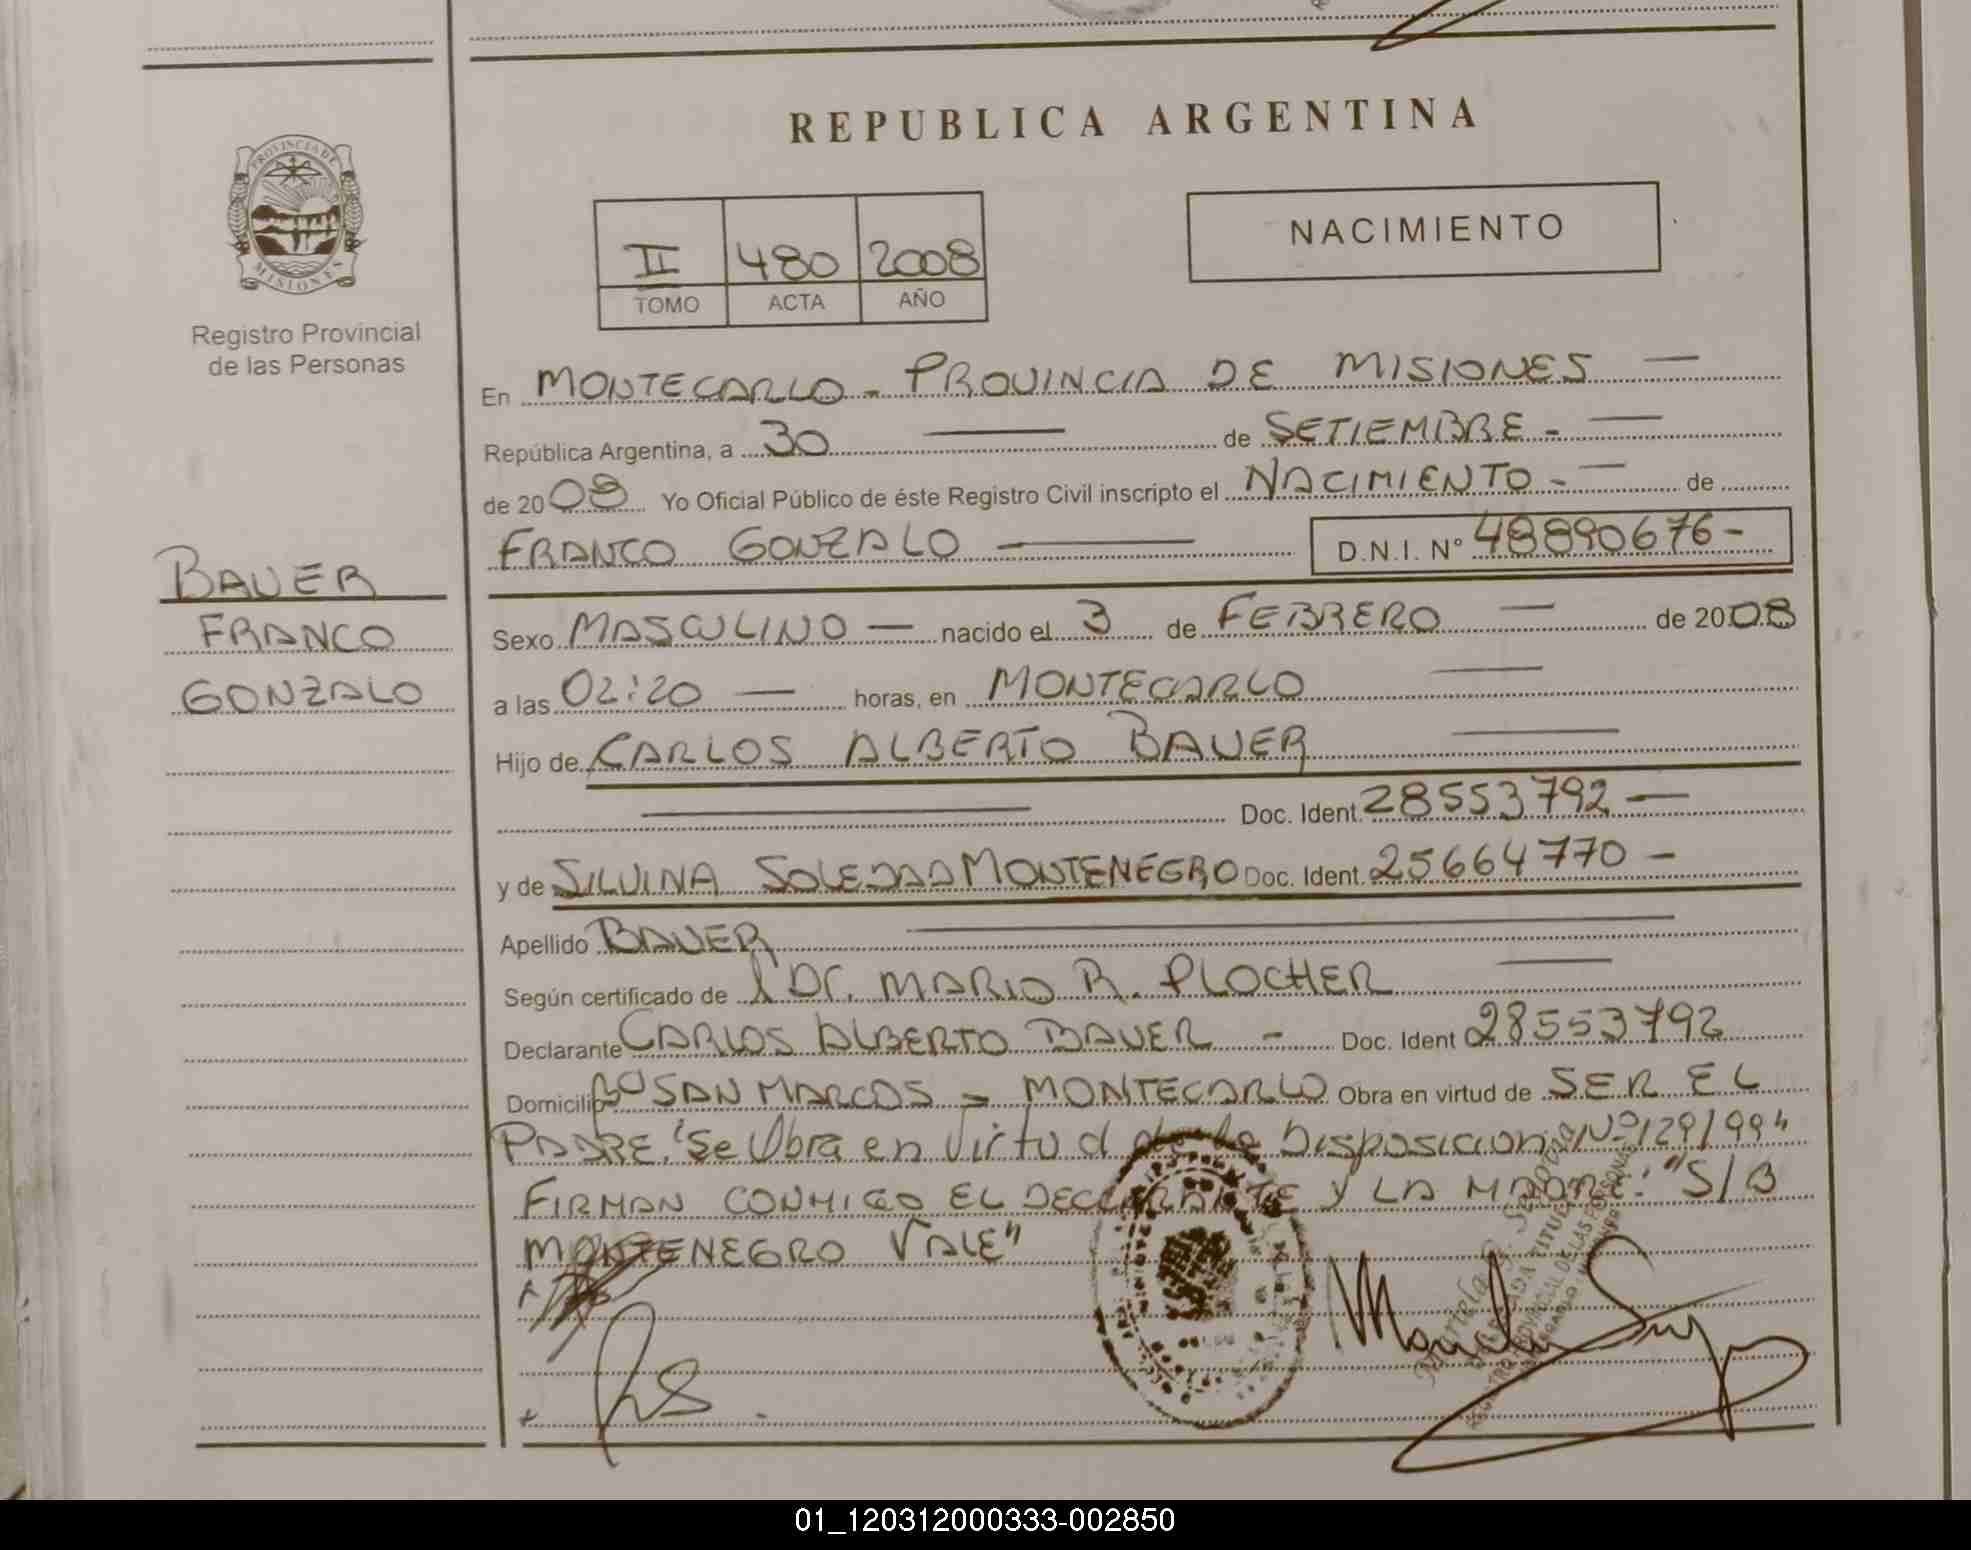 REPUBLICA ARGENTINA
PROVINCIA DE
MISIONES
Registro Provincial
de las Personas
II 480 2008
TOMO ACTA AÑO
NACIMIENTO
En MONTECARLO - PROVINCIA DE MISIONES —
República Argentina, a 30 — de SETIEMBRE - —
de 2008 Yo Oficial Público de éste Registro Civil inscripto el NACIMIENTO - — de
FRANCO GONZALO — D.N.I. Nº 48890676-
BAUER
FRANCO
GONZALO
Sexo MASCULINO — nacido el 3 de FEBRERO — de 2008
a las 02:20 — horas, en MONTECARLO —
Hijo de CARLOS ALBERTO BAUER —
— Doc. Ident. 28553792 —
y de SILVINA SOLEDAD MONTENEGRO Doc. Ident. 25664770 —
Apellido BAUER —
Según certificado de Dr. MARIO R. PLOCHER —
Declarante CARLOS ALBERTO BAUER - Doc. Ident 28553792
Domicilio Bº SAN MARCOS - MONTECARLO Obra en virtud de SER EL
PADRE. "Se Obra en Virtud de la Disposicion Nº 129/99"
FIRMAN CONMIGO EL DECLARANTE Y LA MADRE: "S/B
MONTENEGRO VALE"
01_120312000333-002850